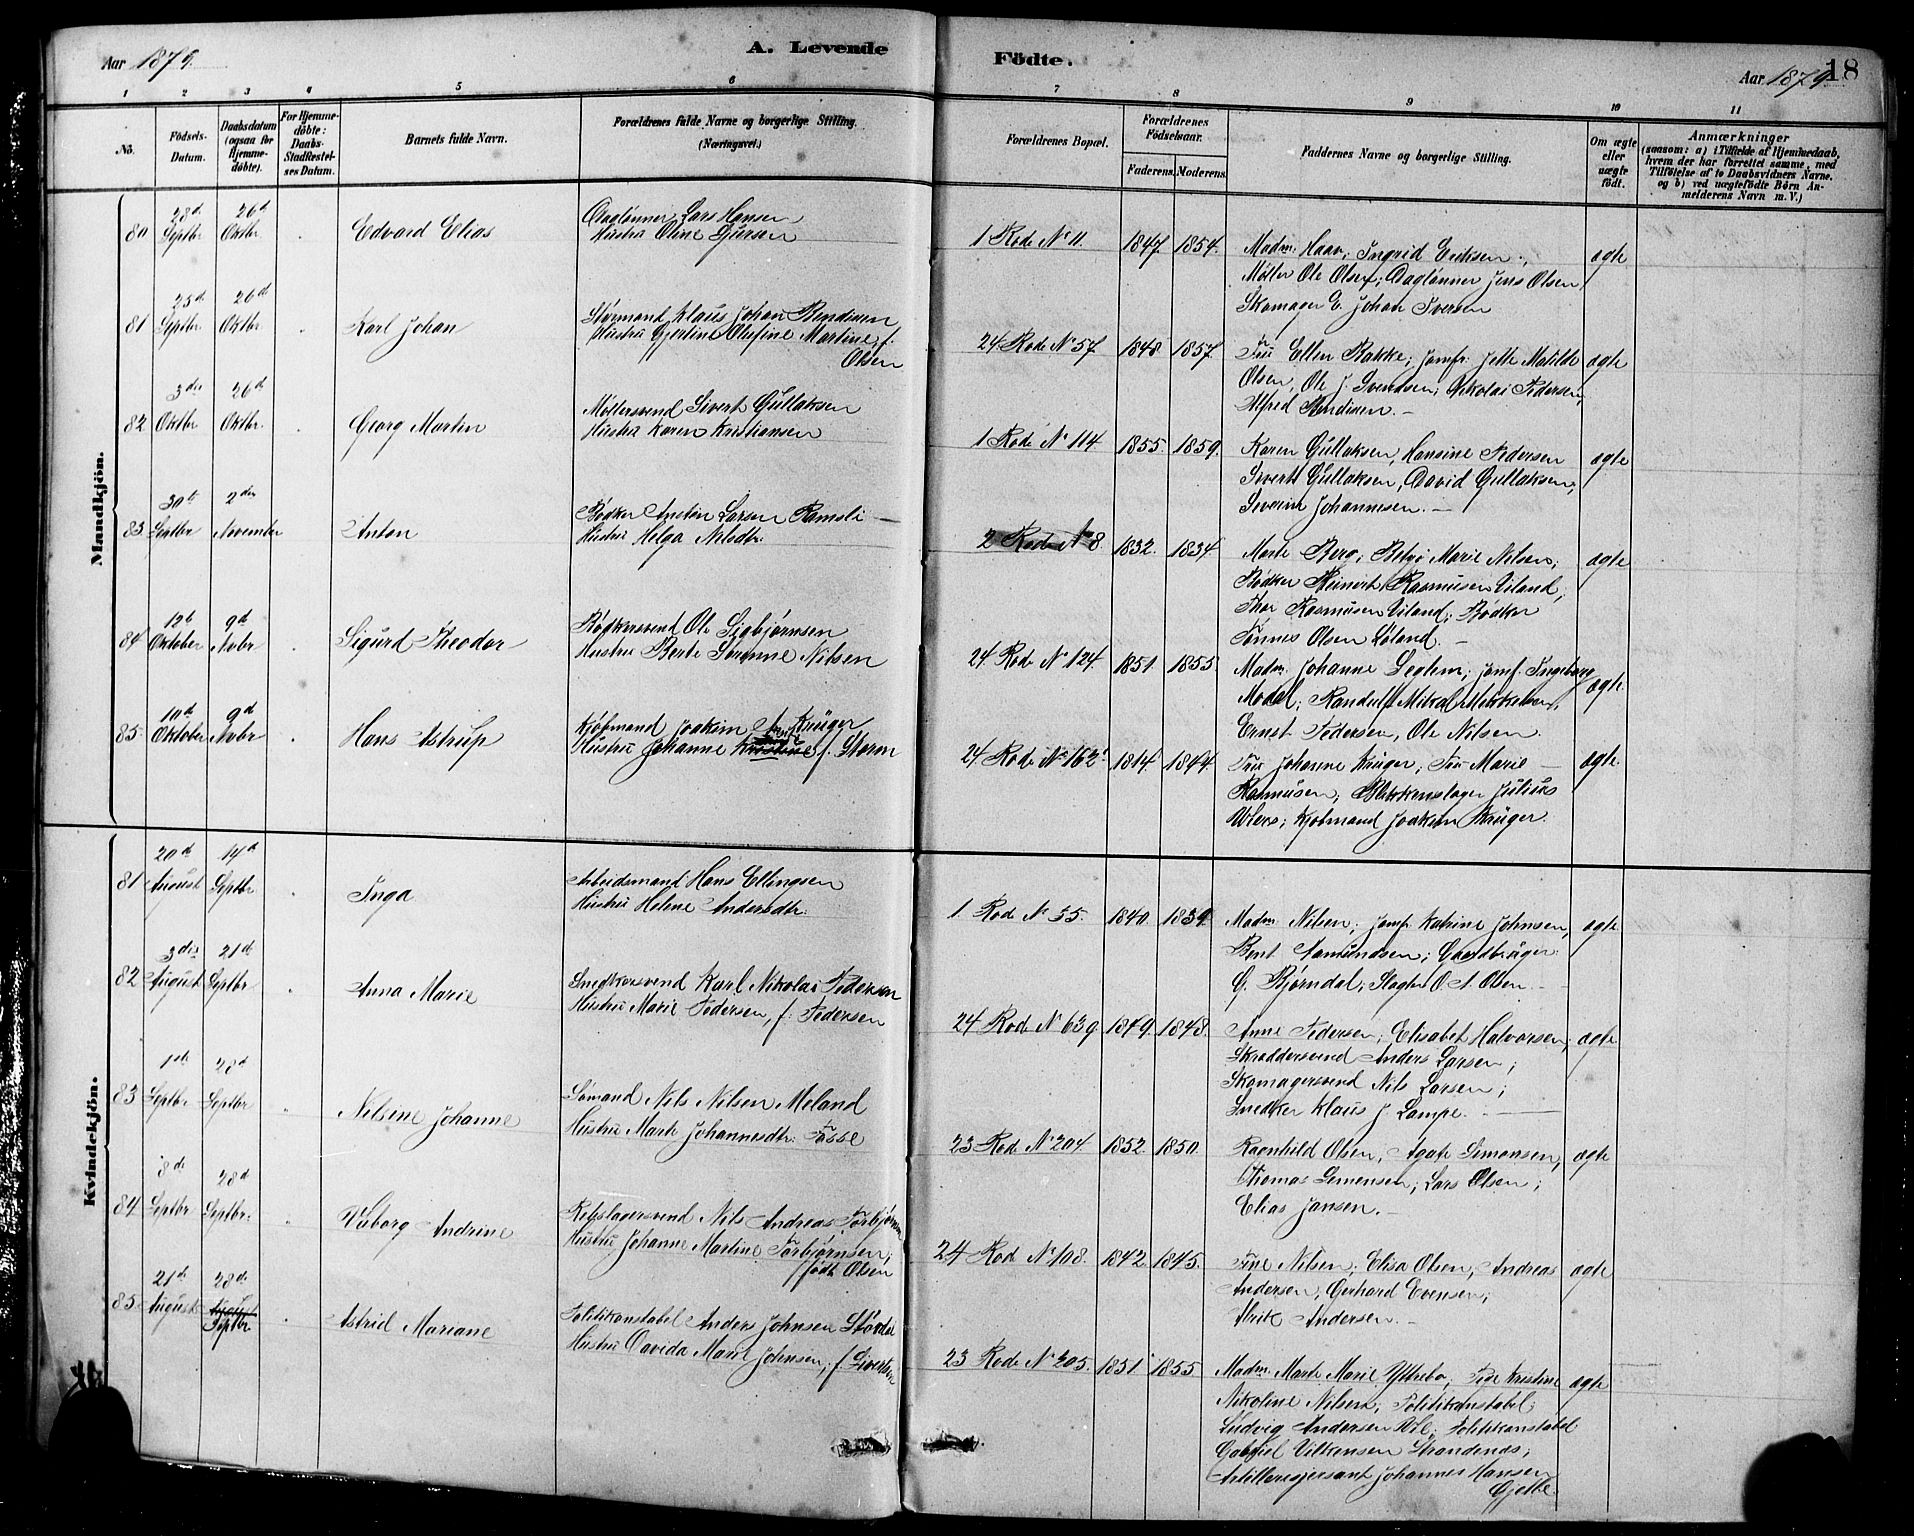 Aar 1879.
A. Levende
Födte.
Aar 1879
18
1 2 3 4 5 6 7 8 9 10 11
No.
Födsels-
Datum.
Daabsdatum
(ogsaa for
Hjemme-
döbte).
For Hjemme-
döbte:
Daabs-
Stadfæstel-
ses Datum.
Barnets fulde Navn.
Forældrenes fulde Navne og borgerlige Stilling.
(Næringsvei.)
Forældrenes Bopæl.
Forældrenes
Födselsaar.
Faderens.
Moderens.
Faddernes Navne og borgerlige Stilling.
Om ægte
eller
uægte
födt.
Anmærkninger
(saasom: a) i Tilfælde af Hjemmedaab,
hvem der har forrettet samme, med
Tilföielse af to Daabsvidners Navne.
og b) ved uægtefödte Börn An-
melderens Navn m. V.)
Mandkjön.
80
28d
Septbr
26d
Oktbr
Edvard Elias
Daglønner Lars Hansen
Hustru Oline
1 Rode No 11.
1847.
1854.
Madm. Haav, Ingrid Eriksen,
Møller Ole Olsen; Daglønner Jens Olsen,
Skomager E. Johan Iversen
ægte
81
25d
Septbr
26d
Oktbr
Karl Johan
Styrmand Klaus Johan Bendixen
Hustru Gjertine Olufine Martine, f.
Olsen
24. Rode No 57
1848
1857.
Fru Ellen Bakke; Jomfr. Jette Matilde
Olsen, Ole J. Svendsen; Nikolai Pedersen,
Alfred Bendixen. -
ægte
82
3die
Oktbr
26d
Oktbr.
Georg Martin
Møllersvend Sivert Gullaksen
Hustru Karen Kristiansen
1 Rode No 114
1855.
1859.
Karen Gullaksen, Hansine Pedersen
Sivert Gullaksen, David Gullaksen,
Severin Johannesen. -
ægte
83
30te
Septbr
2den
November
Anton
Bødker Anston Larsen Ramsli -
Hustru Helga Nilsdtr.
2 Rode No 8
1832.
1834.
Marte Berg; Marie Nilsen;
Bødker Reinert Rasmusen Viland;
Thor Rasmusen Viland; Bødker
Tønnes Olsen Løland. -
ægte
84
12te
Oktober
9d
Novbr
Sigurd Theodor
Bødkersvend Ole Sigbjørnsen
Hustru Berte Nilsen
24. Rode No 124
1851.
1855.
Madm. Johanne Legtem; Jomf. Ingeborg
Modal; Randulf Mikal Mikkelsen,
Ernst Pedersen, Ole Nilsen.
ægte.
85.
10d
Oktober
9d
Novbr
Hans Astrup
Kjøbmand Joakim Krüger
Hustru Johanne f. Storm
24 Rode No 162.
1814.
1844.
Fru Johanne Krüger; Fru Marie -
Rasmusen; Blikkenslager Julius
Kjøbmand Joakim Krüger.
ægte
Kvindekjön.
81
20d
August
14d
Septbr
Inga
Arbeidsmand Hans Ellingsen
Hustru Helene Andersdtr.
1 Rode No 55.
1840.
1839.
Madm. Nilsen; Jomfr Katrine Johnsen,
Bent Aamundsen; Gaardbruger
G. Bjørndal; Slagter O. A. Olsen. -
ægte
82
3die
August
21d
Septbr
Anna Marie
Snedkersvend Karl Nikolai Pedersen
Hustru Marie Pedersen, f. Pedersen
24 Rode No 639
1849.
1848.
Anne Pedersen; Elisabet Halvorsen;
Skræddersvend Anders Larsen;
Skomagersvend Nils Larsen;
Snedker Klaus J. Lampe. -
ægte
83
1ste
Septbr
28d
Septbr
Nilsine Johanne
Sømand Nils Nilsen Meland
Hustru Marte Johannesdtr. Fosse
23 Rode No 204.
1852.
1850.
Ragnhild Olsen, Agate Simonsen,
Thomas Simensen; Lars Olsen;
Elias Jansen. -
ægte
84
8de
Septbr.
28d
Septbr.
Viborg Andrine
Rebslagersvend Nils Andreas Torbjørnsen
Hustru Johanne Martine Torbjørnsen;
født Olsen
24 Rode No 108.
1842.
1845.
Tine Nilsen; Elisa Olsen, Andreas
Andersen, Gerhard Evensen;
Alrik Andersen. -
ægte
85.
21de
August
28de
August
Septbr
Astrid Mariane
Politikonstabel Anders Johnsen Størdal
Hustru Davida Marie Johnsen; f. Sivertsen
23 Rode No 205.
1851
1855
Madm. Marte Marie Yttrebø, Kristine
Nikoline Nilsen; Politikonstabel
Ludvig Andersen Politikonstabel
Gabriel Vilkensen Strandenæs;
Artillerisersant Johannes Hansen
Gjelle.
ægte